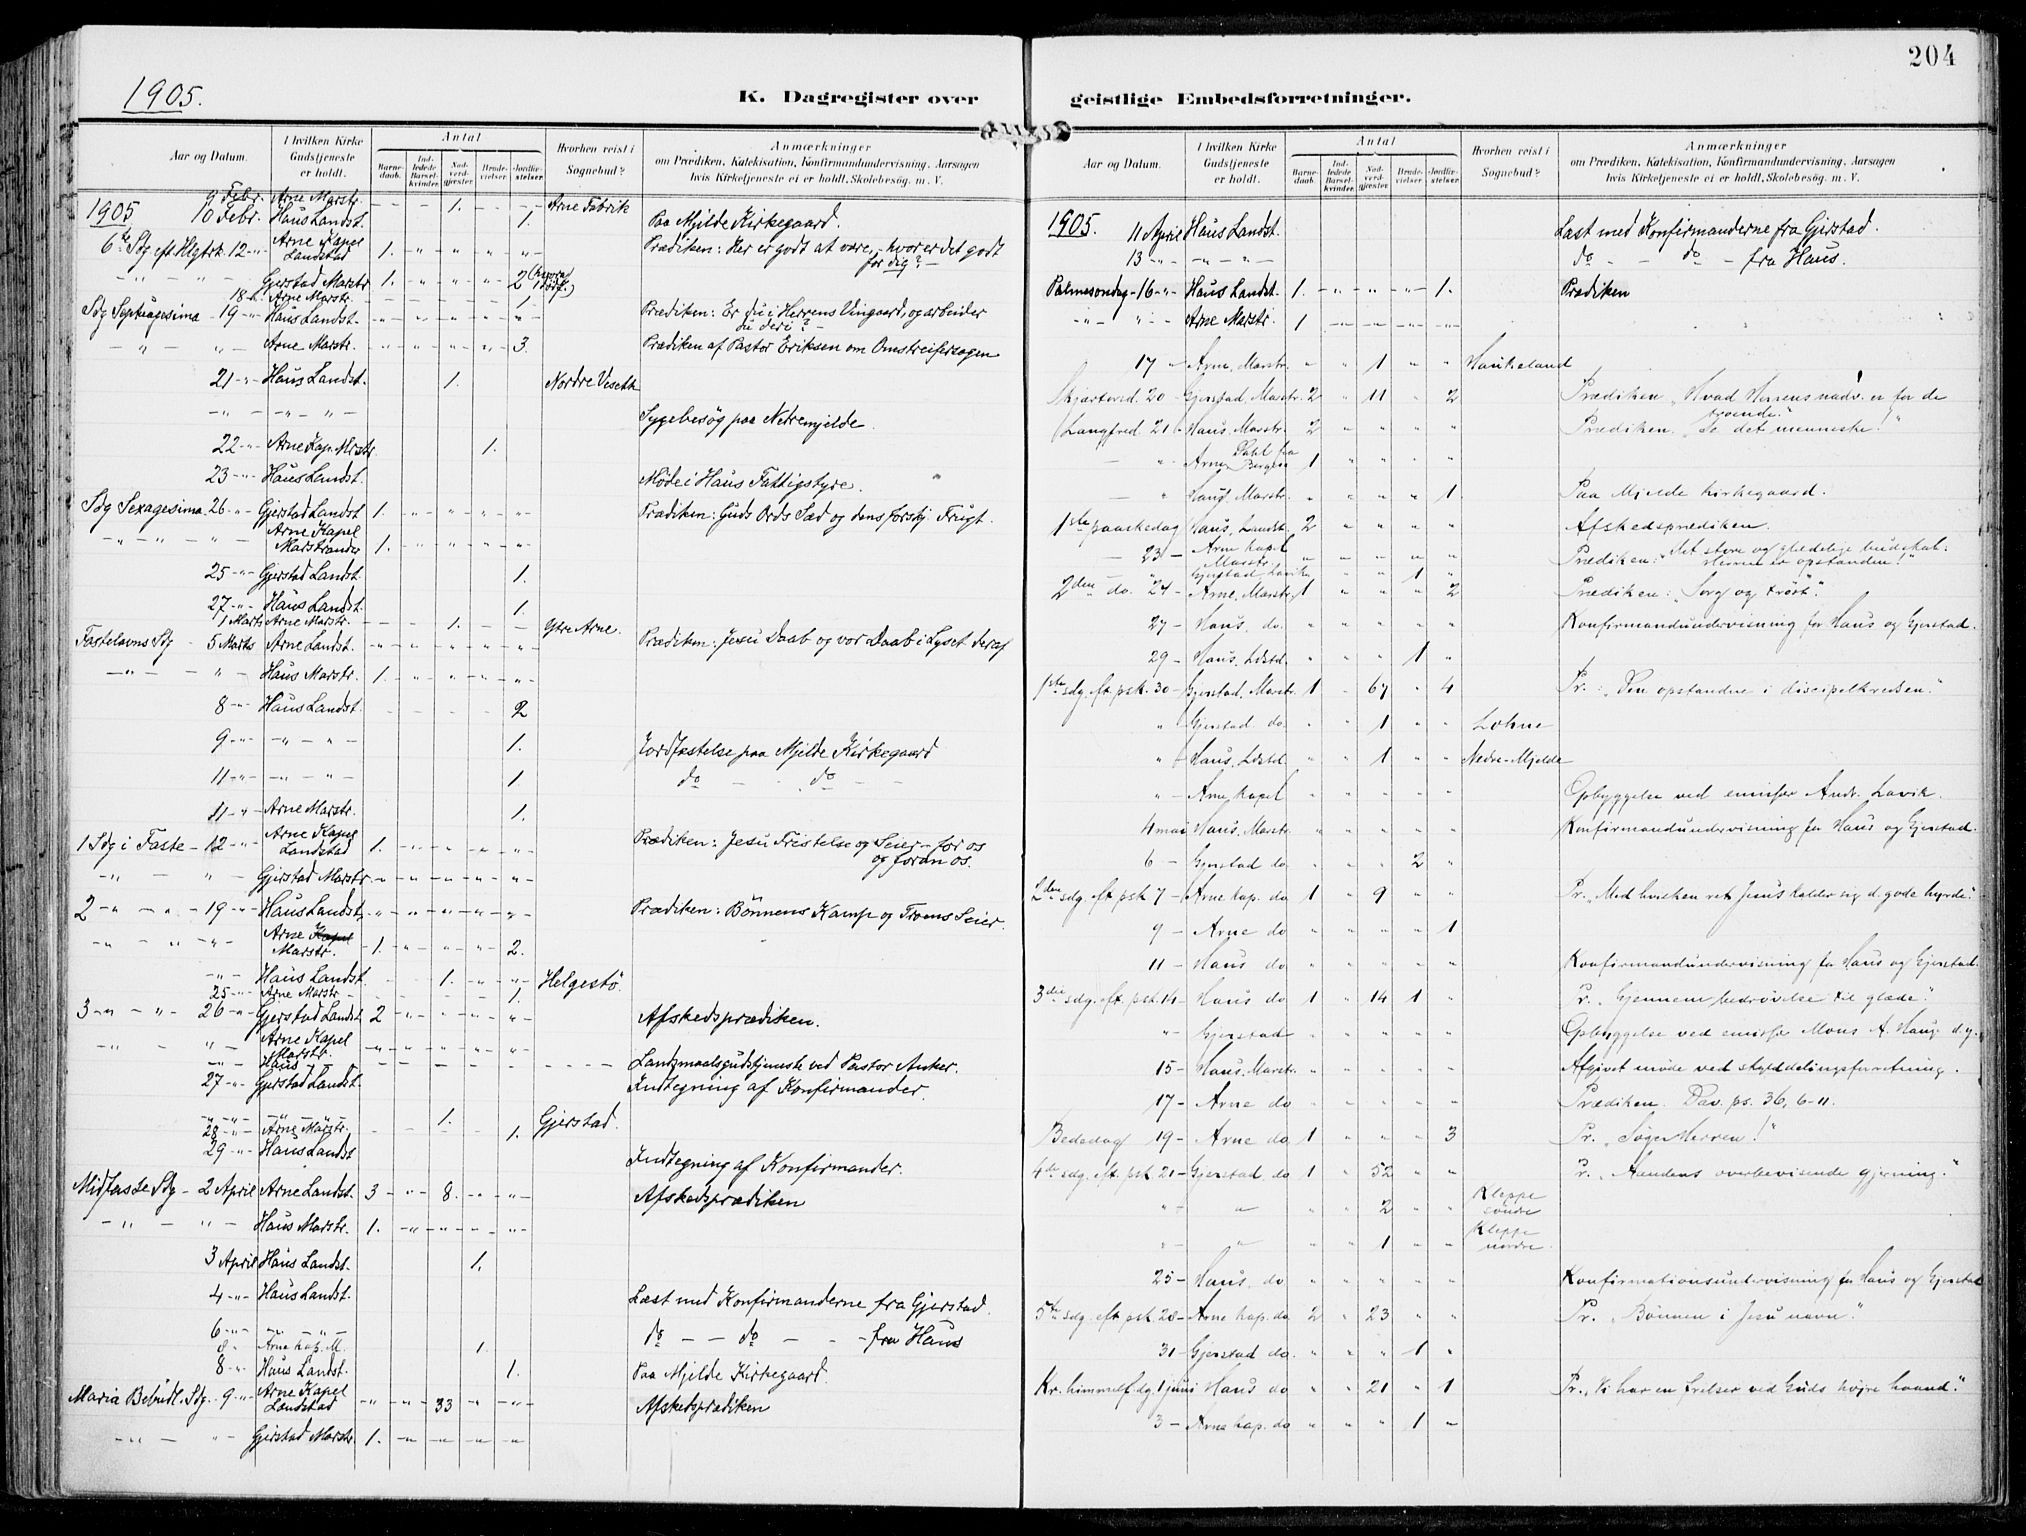 204
1905.
K. Dagregister over geistlige Embedsforretninger.
Aar og Datum.
I hvilken Kirke Gudstjeneste er holdt.
Antal
Barnedaab.
Indledede Barselkvinder.
Nadverdgjester
Brudevielser
Jordfæstelser
Hvorhen reist i Sognebud?
Anmærkninger
om Prædiken, Katekisation, Konfirmandundervisning, Aarsagen
hvis Kirketjeneste ei er holdt, Skolebesøg, m. V.
9 Febr. Arne Marstr. 1. Arne Fabrik
1905 10 Febr. Haus Landst. 1. Paa Mjelde Kirkegaard.
6te Sdg eft. Hlgtrk. 12 -"- Arne Kapel Landstad 1. Prædiken: Her er godt at være, - hvor er det godt for dig? -
Gjerstad Marstr. 1. 2
18 -"- Arne Marstr. 1
Sdg Septuagesima - 19 -"- Haus Landst. Prædiken: Er du i Herrens Vingaard, og arbeider du deri? -
Arne Marstr. 3. Prædiken af Pastor Eriksen om Omstreifersagen
21 -"- Haus Landst. 1. Nordre
Sygebesøg paa Netremjelde.
22 -"- Arne Kap. Mrstr. 1.
23 -"- Haus Landst. Møde i Haus Fattigstyre.
Sdg Sexagesima 26 -"- Gjerstad Landst 1. Prædiken: Guds Ords Sæd og dens forskj. Frugt.
Arne Kapel Marstrander 1.
25 -"- Gjerstad Landst. 1.
27 -"- Haus Landst. 1.
1 Marts Arne Marstr. 1. Ytre Arne.
Fastelavns Sdg - 5 Marts Arne Landst. Prædiken: Jesu Daab og vor Daab i Lyset deraf
Haus Marstr. 1.
8 -"- Haus Landst. 2
9 -"- 1. Jordfæstelse paa Mjelde Kirkegaard
11 -"- 1. do - do -
11 -"- Arne Marstr. 1.
1 Sdg i Faste - 12 -"- Arne Kapel Landstad 1. Prædiken: Jesu Fristelse og Seier - for os og foran os.
Gjerstad Marstr
2 -"- 19 -"- Haus Landst. Prædiken: Bønnens Kamp og Troens Seier.
Arne Kapel Marstr. 1. 2.
Haus Landst. 1. Helgestø.
25 -"- Arne Marstr 1.
3 -"- 26 -"- Gjerstad Landst 2 Afskedsprædiken.
Arne Kapel Marstr.
Haus Landsmaalsgudstjeneste ved Pastor Anker.
27 -"- Gjerstad Landst. Indtegning af Konfirmander.
1. Gjerstad.
28 -"- Arne Marstr. 1.
29 -"- Haus Landst Indtegning af Konfirmander.
Midfaste Sdg - 2 April Arne Landst. 3 8. Afskedsprædiken
Haus Marstr. 1.
3 April Haus Landst. 1.
4 -"- Haus Landst. Læst med Konfirmanderne fra Gjerstad.
6 -"- do - - do - - fra Haus
8 " Arne kap. M. 1
8 -"- Haus Landst. 1. Paa Mjelde Kirkegaard.
Maria Bebudl. Sdg. - 9 -"- Arne Kapel Landstad 33 Afskedsprædiken
Gjerstad Marstr. 1.
Aar og Datum.
I hvilken Kirke Gudstjeneste er holdt.
Antal
Barnedaab.
Indledede Barselkvinder.
Nadverdgjester
Brudevielser
Jordfæstelser
Hvorhen reist i Sognebud?
Anmærkninger
om Prædiken, Katekisation, Konfirmandundervisning, Aarsagen
hvis Kirketjeneste ei er holdt, Skolebesøg, m. V.
1905. 11 April Haus Landst. Læst med Konfirmanderne fra Gjerstad.
13 -"- do - do - fra Haus.
Palmesøndag - 16 -"- Haus Landst. 1. 1. Prædiken
Arne Marstr. 1
17 - Arne, Marstr. 1 Haukeland
Skjærtorsd. 20 - Gjerstad Marstr. 2 11 2 Prædiken "Hvad Herrens nadv. er for de troende."
Langfred. 21 - Haus. Marstr. 2 Prædiken. "Se det menneske!"
Arne Dahl fra Bergen 1
Haus Marstr. 1. Paa Mjelde kirkegaard.
1ste paaskedag Haus, Landst. 2 Afskedsprædiken.
23 - Arne kapel Marstr. Prædiken: "Det store og glædelige budskab: Herren er opstanden!"
Gjerstad, Lavik 1
2den do. 24 - Arne, Marstr, 1 2 Prædiken: "Sorg og trøst".
27 - Haus, do. Konfirmandundervisning for Haus og Gjerstad.
29 - Haus. Ldstd. 1
1ste sdg. eft. psk. 30 - Gjerstad, Marstr. 1 67 4 Pr.: "Den opstandne i discipelkredsen."
Gjerstad do 1 Lohne
Haus, Ldstd. 1 Nedre-Mjelde
Arne kapel Opbyggelse ved emissær Andr. Lavik.
4 mai Haus. Marstr. Konfirmandundervisning for Haus og Gjerstad.
6 - Gjerstad do 2
2den sdg. eft. psk 7 - Arne kap. do 1 9 Pr. "Med hvilken ret Jesus kalder sig d. gode hyrde."
9 - Arne do 1
11 - Haus do Konfirmandundervisning for Haus og Gjerstad.
3die sdg. eft. psk. 14 - Haus do 1 14 1 Pr. "Gjennem bedrøvelse til glæde."
Gjerstad Opbyggelse ved emissær Mons A. Haug d.y.
15 - Haus. Marstr. Afgivet møde ved skylddelingsforretning.
17 - Arne do Prædiken. Dav. ps. 36, 6-11.
Bededag 19 - Arne do 1 3 Pr. "Søg Herren!"
4de sdg. eft. psk 21 - Gjerstad do 1 52 Pr. "Aandens overbevisende gjerning."
2 Kleppe søndre
1 Kleppe nordre
25 - Haus, do Konfirmationsundervisning for Haus og Gjerstad
5te sdg. eft. psk. 28 - Arne kap. do 2 23 Pr. "Bønnen i Jesu navn."
31 - Gjerstad do. 1
Kr. himmelf.dg. 1 juni Haus do 21 1 Pr. "Vi har en frelser ved Guds højre haand."
3 - Arne kap. do 1